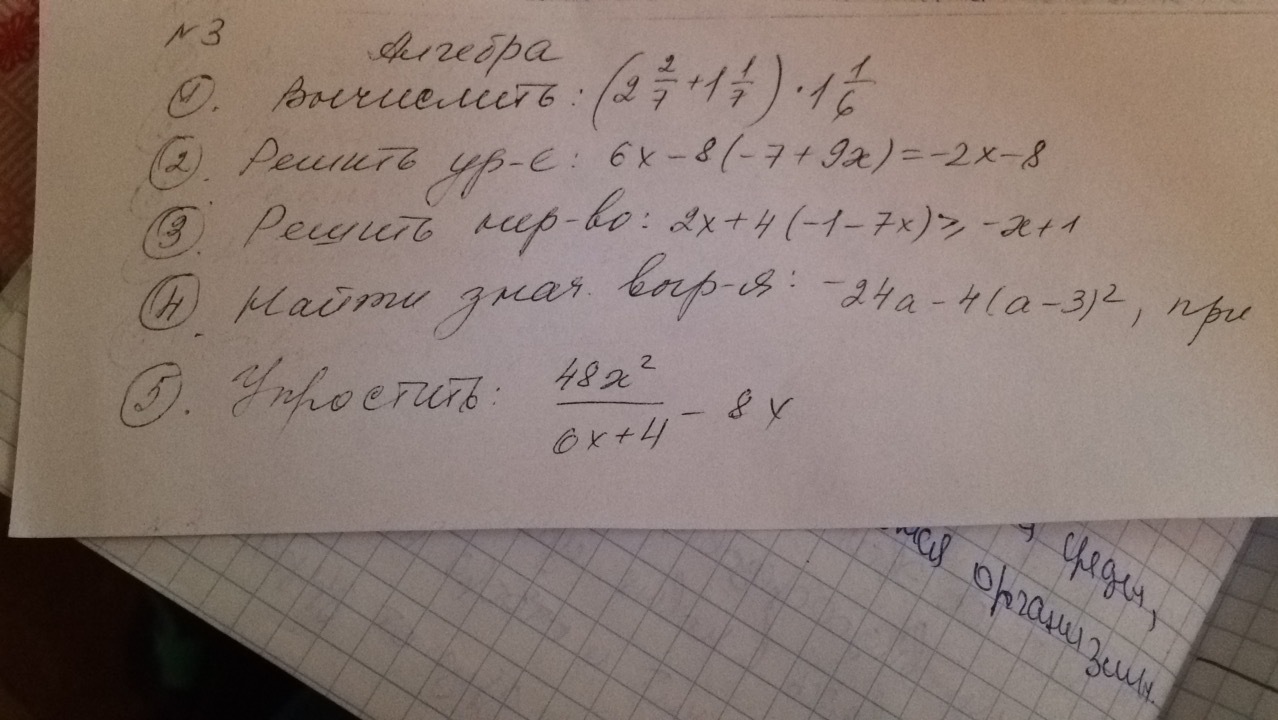 №3
Алгебра
1. Вычислить: (2 2/7 + 1 1/7) · 1 1/6
2. Решить ур-е: 6x - 8(-7 + 9x) = -2x - 8
3. Решить нер-во: 2x + 4(-1 - 7x) ≥ -x + 1
4. Найти знач. выр-я: -24a - 4(a - 3)², при
5. Упростить: 48x²/(6x + 4) - 8x
среды,
организмы